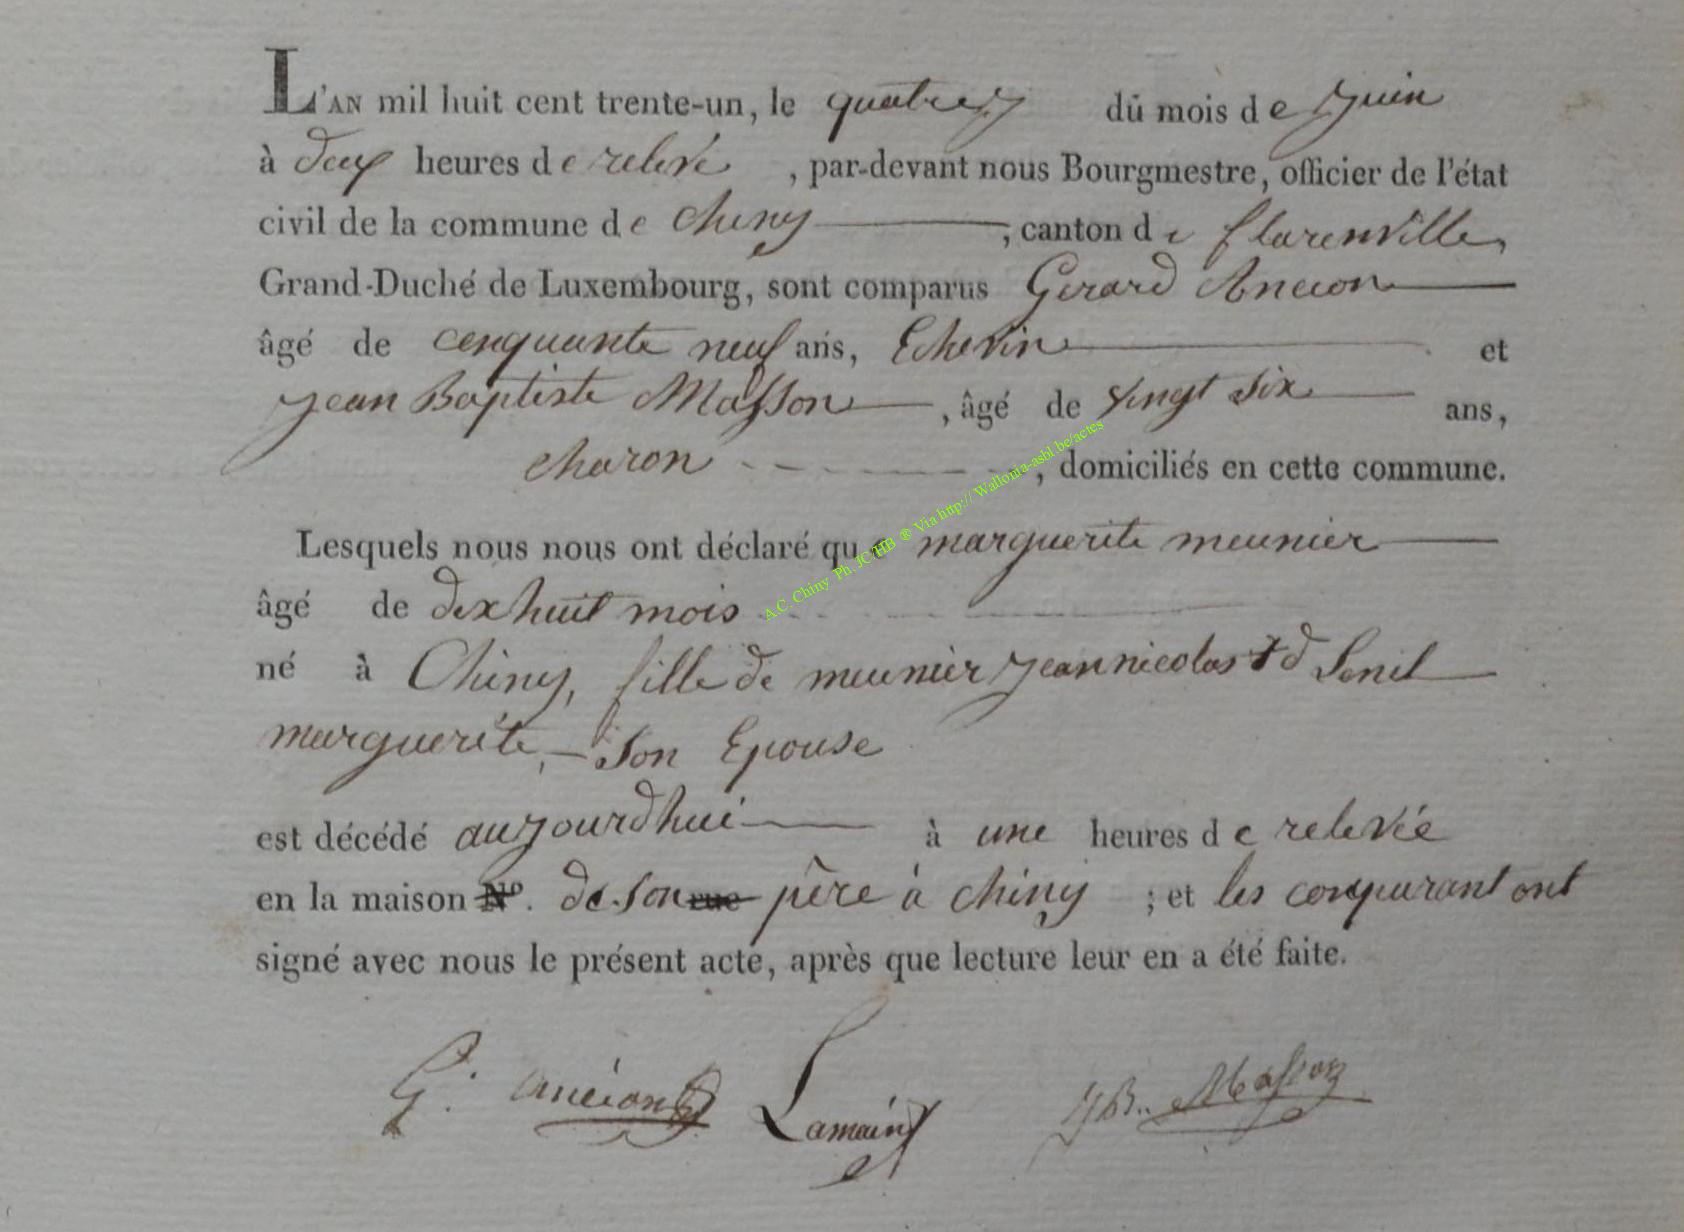 L'AN mil huit cent trente-un, le quatre du mois de juin
à deux heures de relevé , par-devant nous Bourgmestre, officier de l'état
civil de la commune de Chiny , canton de florenville,
Grand-Duché de Luxembourg, sont comparus Gerard Anecion
âgé de cenquante neuf ans, Echevin et
jean Baptiste Masson , âgé de vingt six ans,
charon , domiciliés en cette commune.
Lesquels nous nous ont déclaré que marguerite meunier
âgé de dix huit mois
né à Chiny, fille de meunier jean nicolas + d Senil
marguerite, - Son Epouse
est décédé aujourdhui à une heures de relevée
en la maison N°. de son rue père à chiny ; et les comparant ont
signé avec nous le présent acte, après que lecture leur en a été faite.
G. Anecion Lamain JB.. Masson
A.C. Chiny Ph. JC/HB ® Via http:// Wallonia-asbl be/actes